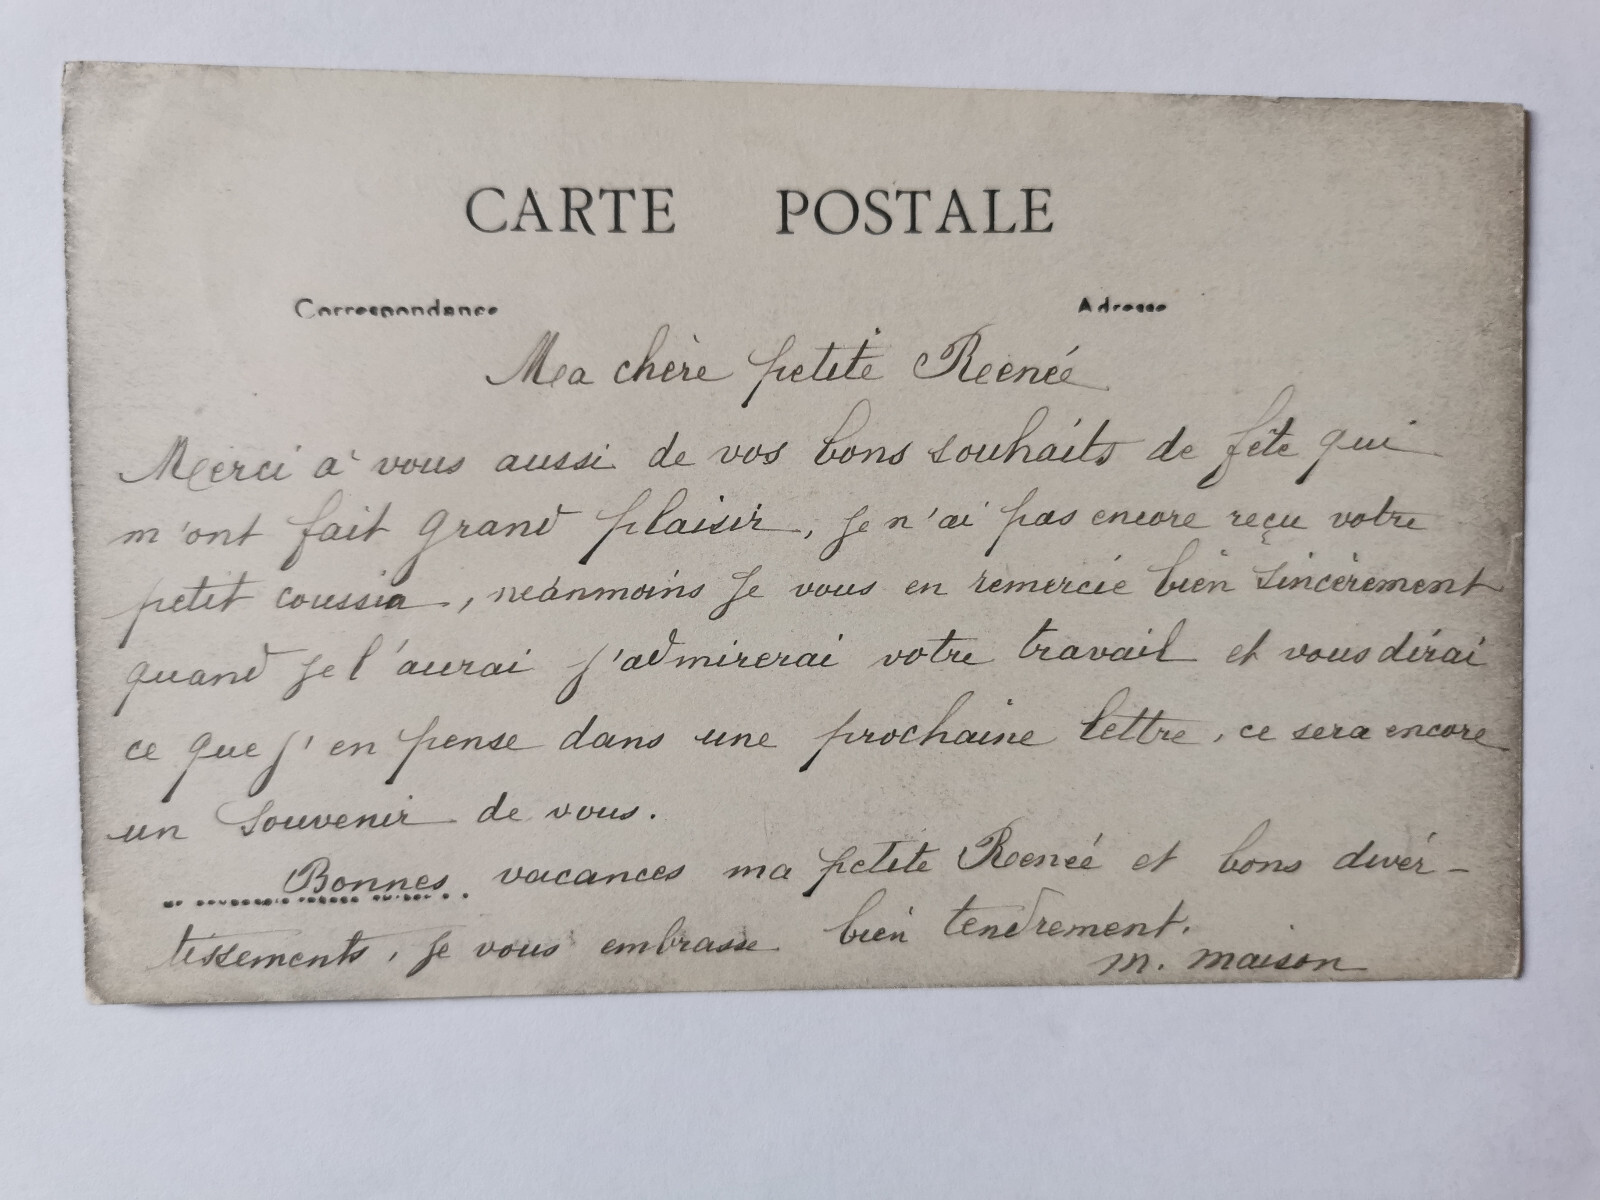 CARTE POSTALE
Correspondance Adresse
Ma chère petite Reenée
Merci à vous aussi de vos bons souhaits de fête qui
m'ont fait grand plaisir, je n'ai pas encore reçu votre
petit coussin, neánmoins je vous en remercie bien sincèrement
quand je l'aurai j'admirerai votre travail et vous dirai
ce que j'en pense dans une prochaine lettre, ce sera encore
un souvenir de vous.
Bonnes vacances ma petite Reenée et bons diver-
tissements, je vous embrasse bien tendrement.
M. Maison